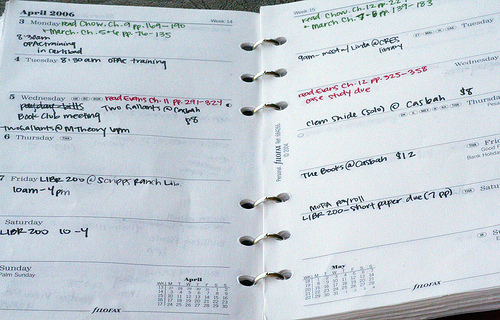 April 2006
Week 14
3 Monday read Chow. Ch. 9 pp. 169-190
+ March. Ch. 5+6 pp. 76-135
8:30am
OPAC training
in Carlsbad
4 Tuesday 8:30am OPAC training
5 Wednesday read Evans Ch. 11 pp. 291-324
paydust bills Two Gallants @ Casbah
Book Club meeting $8
Two Gallants @ M-Theory 6pm
6 Thursday
7 Friday LIBR 200 @ Scripps Ranch Lib.
10am-4pm
Saturday
LIBR 200 10-4
Sunday
Palm Sunday
April
FILOFAX
Personal FILOFAX Ref 68406
© 2004
Week 15
read Chow. Ch. 12 pp. 22
+ March Ch. 7-8 pp 137-183
9am-meet w/ Linda @ CRES
library
Wednesday
read Evans Ch. 12 pp. 325-358
case study due
Clem Snide (solo) @ Casbah $8
Thursday
Good F
Bank Holida
The Boots @ Casbah $12
MOPA payroll
LIBR 200-short paper due (7 pp)
Satur
May
FILOFAX